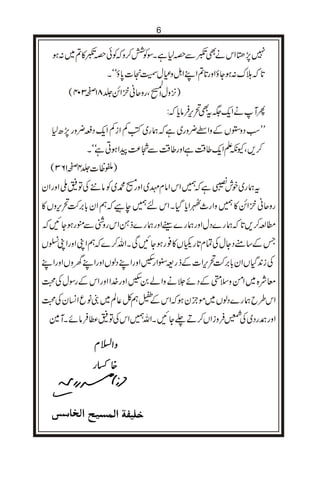 6
نہیں پڑھتا اس نے بھی تکبر سے ایسا حصہ لیا ہے۔ سو کوشش کرو کہ کوئی حصہ تکبر کا تم میں نہ ہو
تا کہ ہلاک نہ ہو جاؤ اور تا تم اپنے اہل و عیال سمیت نجات پاؤ‘‘۔
(نزول المسیح، روحانی خزائن جلد ۱۸ صفحہ ۴۰۳)
پھر آپ نے ایک جگہ یہ بھی تحریر فرمایا کہ:
’’سب دوستوں کے واسطے ضروری ہے کہ ہماری کتب کم از کم ایک دفعہ ضرور پڑھ لیا
کریں، کیونکہ علم ایک طاقت ہے اور طاقت سے شجاعت پیدا ہوتی ہے‘‘۔
(ملفوظات جلد ۴ صفحہ ۳۶۱)
یہ ہماری خوش نصیبی ہے کہ ہمیں اس امام مہدی اور مسیح محمدی کو ماننے کی توفیق ملی اور ان
روحانی خزائن کا ہمیں وارث ٹھہرایا گیا۔ اس لئے ہمیں چاہیے کہ ہم ان بابرکت تحریروں کا
مطالعہ کریں تا کہ ہمارے دل اور ہمارے سینے اور ہمارے ذہن اس روشنی سے منور ہو جائیں کہ
جس کے سامنے دجال کی تمام تاریکیاں کافور ہو جائیں گی۔ اللہ کرے کہ ہم اپنی اور اپنی نسلوں
کی زندگیاں ان بابرکت تحریرات کے ذریعہ سنوار سکیں اور اپنے دلوں اور اپنے گھروں اور اپنے
معاشرہ میں امن و سلامتی کے دئے جلانے والے بن سکیں اور خدا اور اس کے رسول کی محبت
اس طرح ہمارے دلوں میں موجزن ہو کہ اس کے طفیل ہم کل عالم میں بنی نوع انسان کی محبت
اور ہمدردی کی شمعیں فروزاں کرتے چلے جائیں۔ اللہ ہمیں اس کی توفیق عطا فرمائے۔ آمین
والسلام
خاکسار
خليفة المسيح الخامس